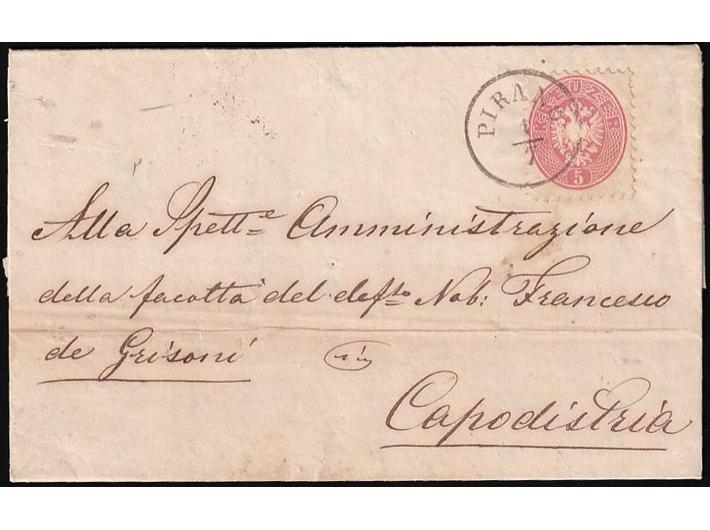 PIRANO
5
Alla Spett.e Amministrazione
della facoltà del def.to Nob: Francesco
de Grisoni in
Capodistria